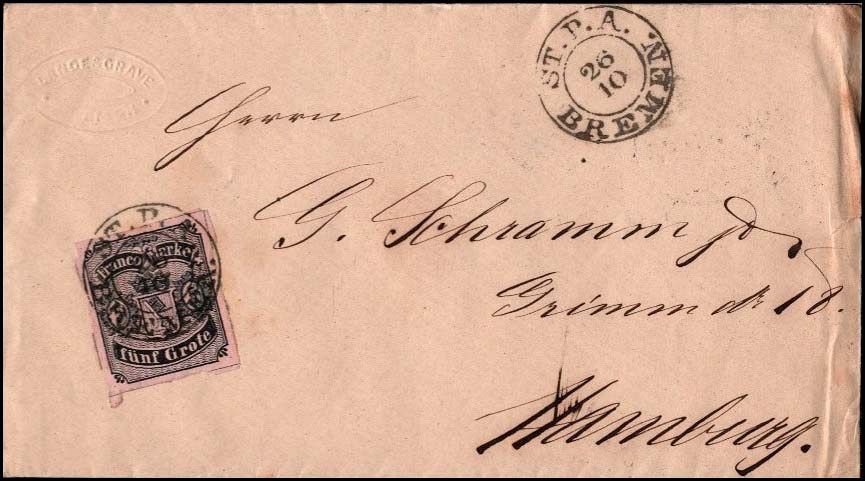 ST. P. A.
BREMEN
26
10
LANGE & GRAVE
Herrn
G. Schramm jr
Grimm No 18.
Hamburg.
ST. P.
26
Franco Marke
fünf Grote